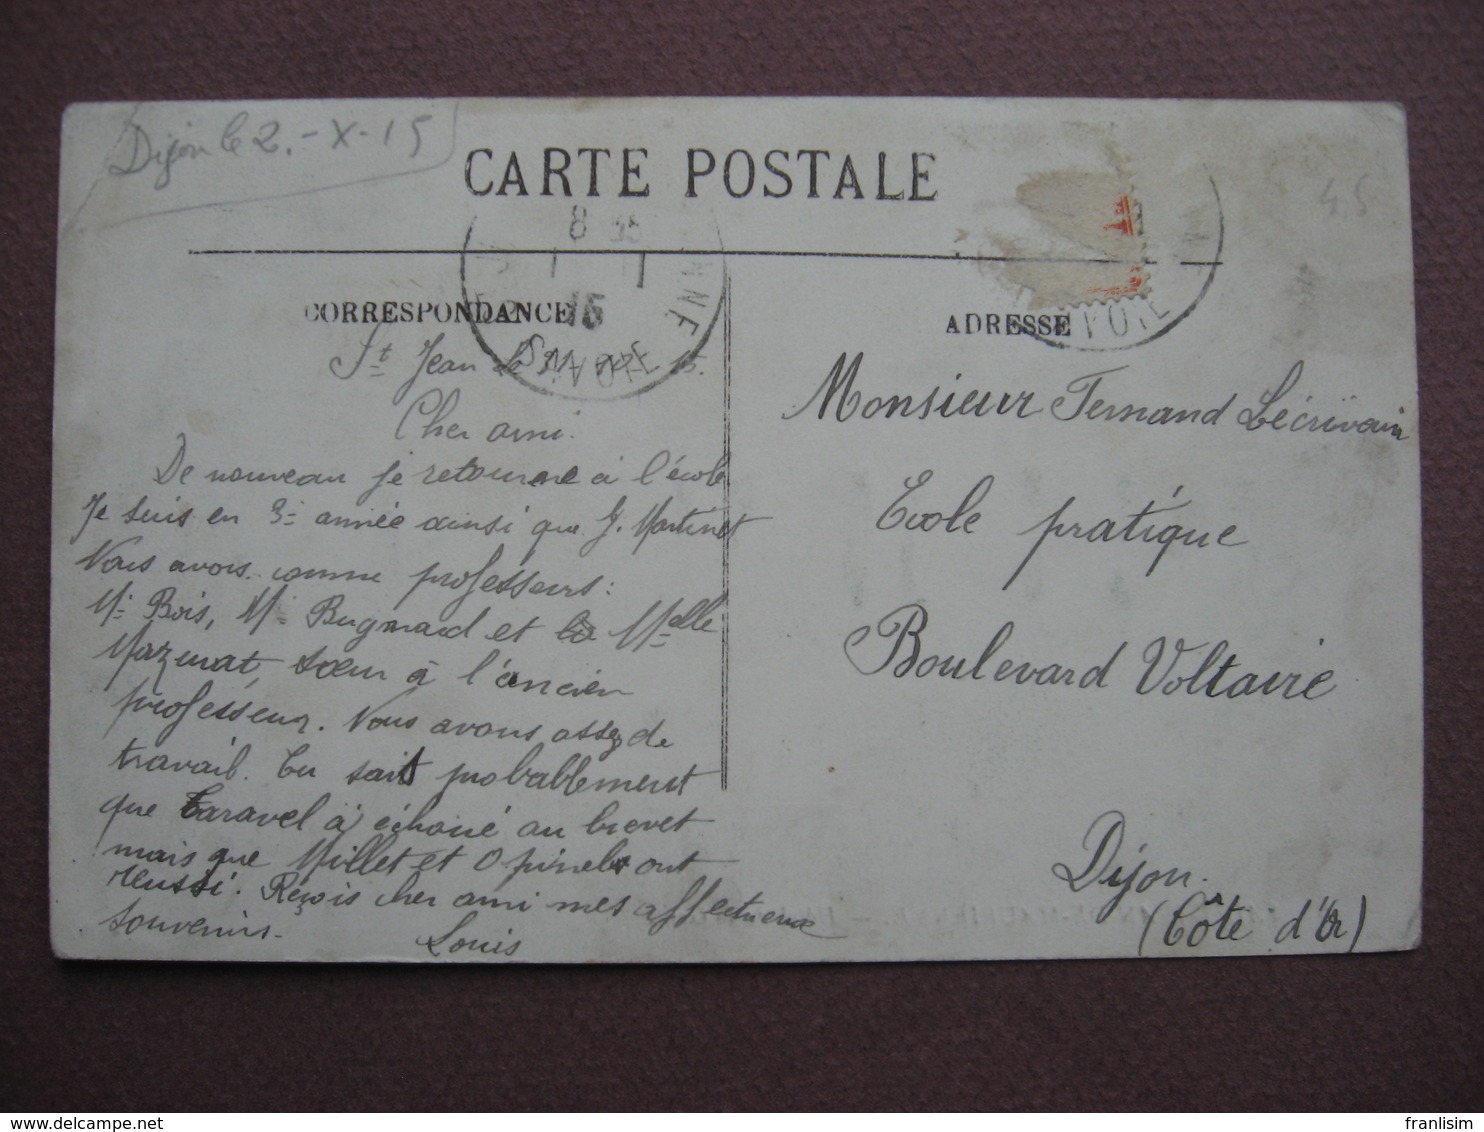 Dijon le 2.-X-15
CARTE POSTALE
4.5
8 35
15
SAVOIE
CORRESPONDANCE
ADRESSE
St Jean le
Cher ami.
De nouveau je retourne à l'école
Je suis en 3e année ainsi que J. Martinet
Nous avons comme professeurs:
Mr Bois, Mr Bugnard et Melle
Mazenat, sœur à l'ancien
professeur. Nous avons assez de
travail. Tu sait probablement
que Taravel à échoué au brevet
mais que Millet et Opinel ont
réussi. Reçois cher ami mes affectueux
souvenirs.
Louis
Monsieur Fernand Lécrivain
Ecole pratique
Boulevard Voltaire
Dijon.
(Côte d'Or)
delcampe.net
franlisim